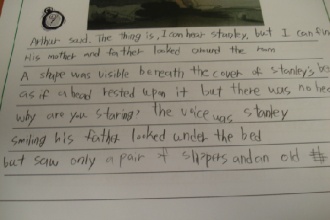 Arthur said. The thing is, I can hear stanley, but I can fin
His mother and father looked around the room
A shape was visible beneath the cover of stanley's be
as if a head rested upon it but there was no hea
why are you staring? the voice was stanley
smiling his father looked under the bed
but saw only a pair of slippers and an old #